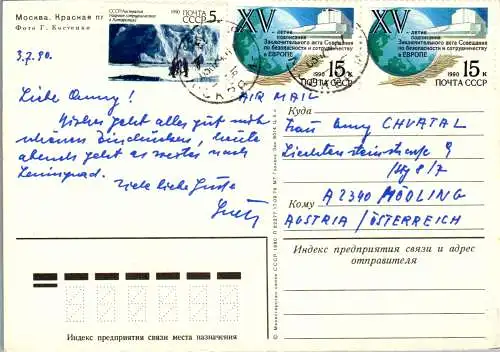 Москва. Красная пл
Фото Г. Костенко
СССР-Австралия
1990
5к
ПОЧТА СССР
XV
-летие
подписания
Заключительного акта Совещания
по безопасности и сотрудничеству
в ЕВРОПЕ
1990 15к
ПОЧТА СССР
XV
-летие
подписания
Заключительного акта Совещания
по безопасности и сотрудничеству
в ЕВРОПЕ
1990 15к
ПОЧТА СССР
3.7.90.
Liebe Anny!
Bisher geht alles gut mit
schönen Eindrücken, heute
abends geht es weiter nach
Leningrad.
Viele liebe Grüße
AIR MAIL
Куда
Frau Anny CHVATAL
Liechtensteinstrasse 9
/Stg 8/7
Кому A 2340 MÖDLING
AUSTRIA/ÖSTERREICH
Индекс предприятия связи и адрес
отправителя
Индекс предприятия связи места назначения
© Министерство связи СССР. 1980